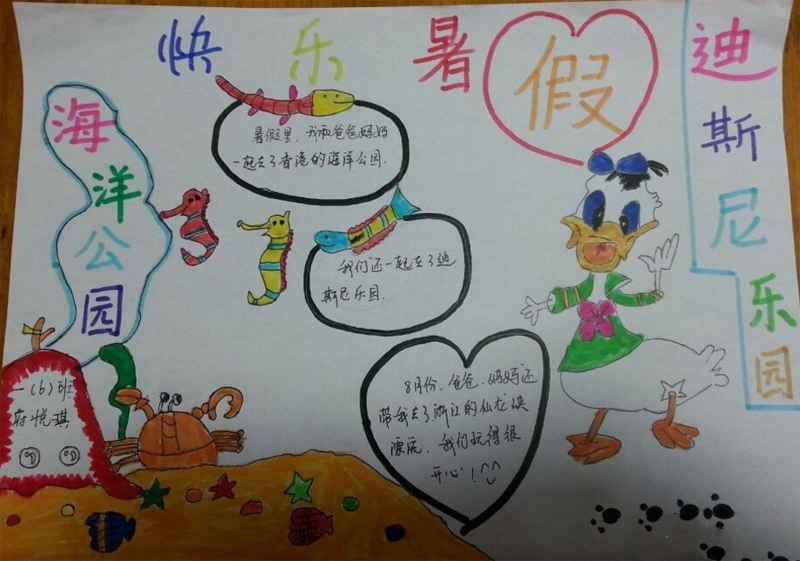 快乐暑假
迪斯尼乐园
海洋公园
暑假里，我和爸爸妈妈
一起去了香港的海洋公园.
我们还一起去了迪
斯尼乐园.
8月份，爸爸、妈妈还
带我去了浙江的仙龙峡
漂流，我们玩得很
开心！
一(6)班
府悦琪